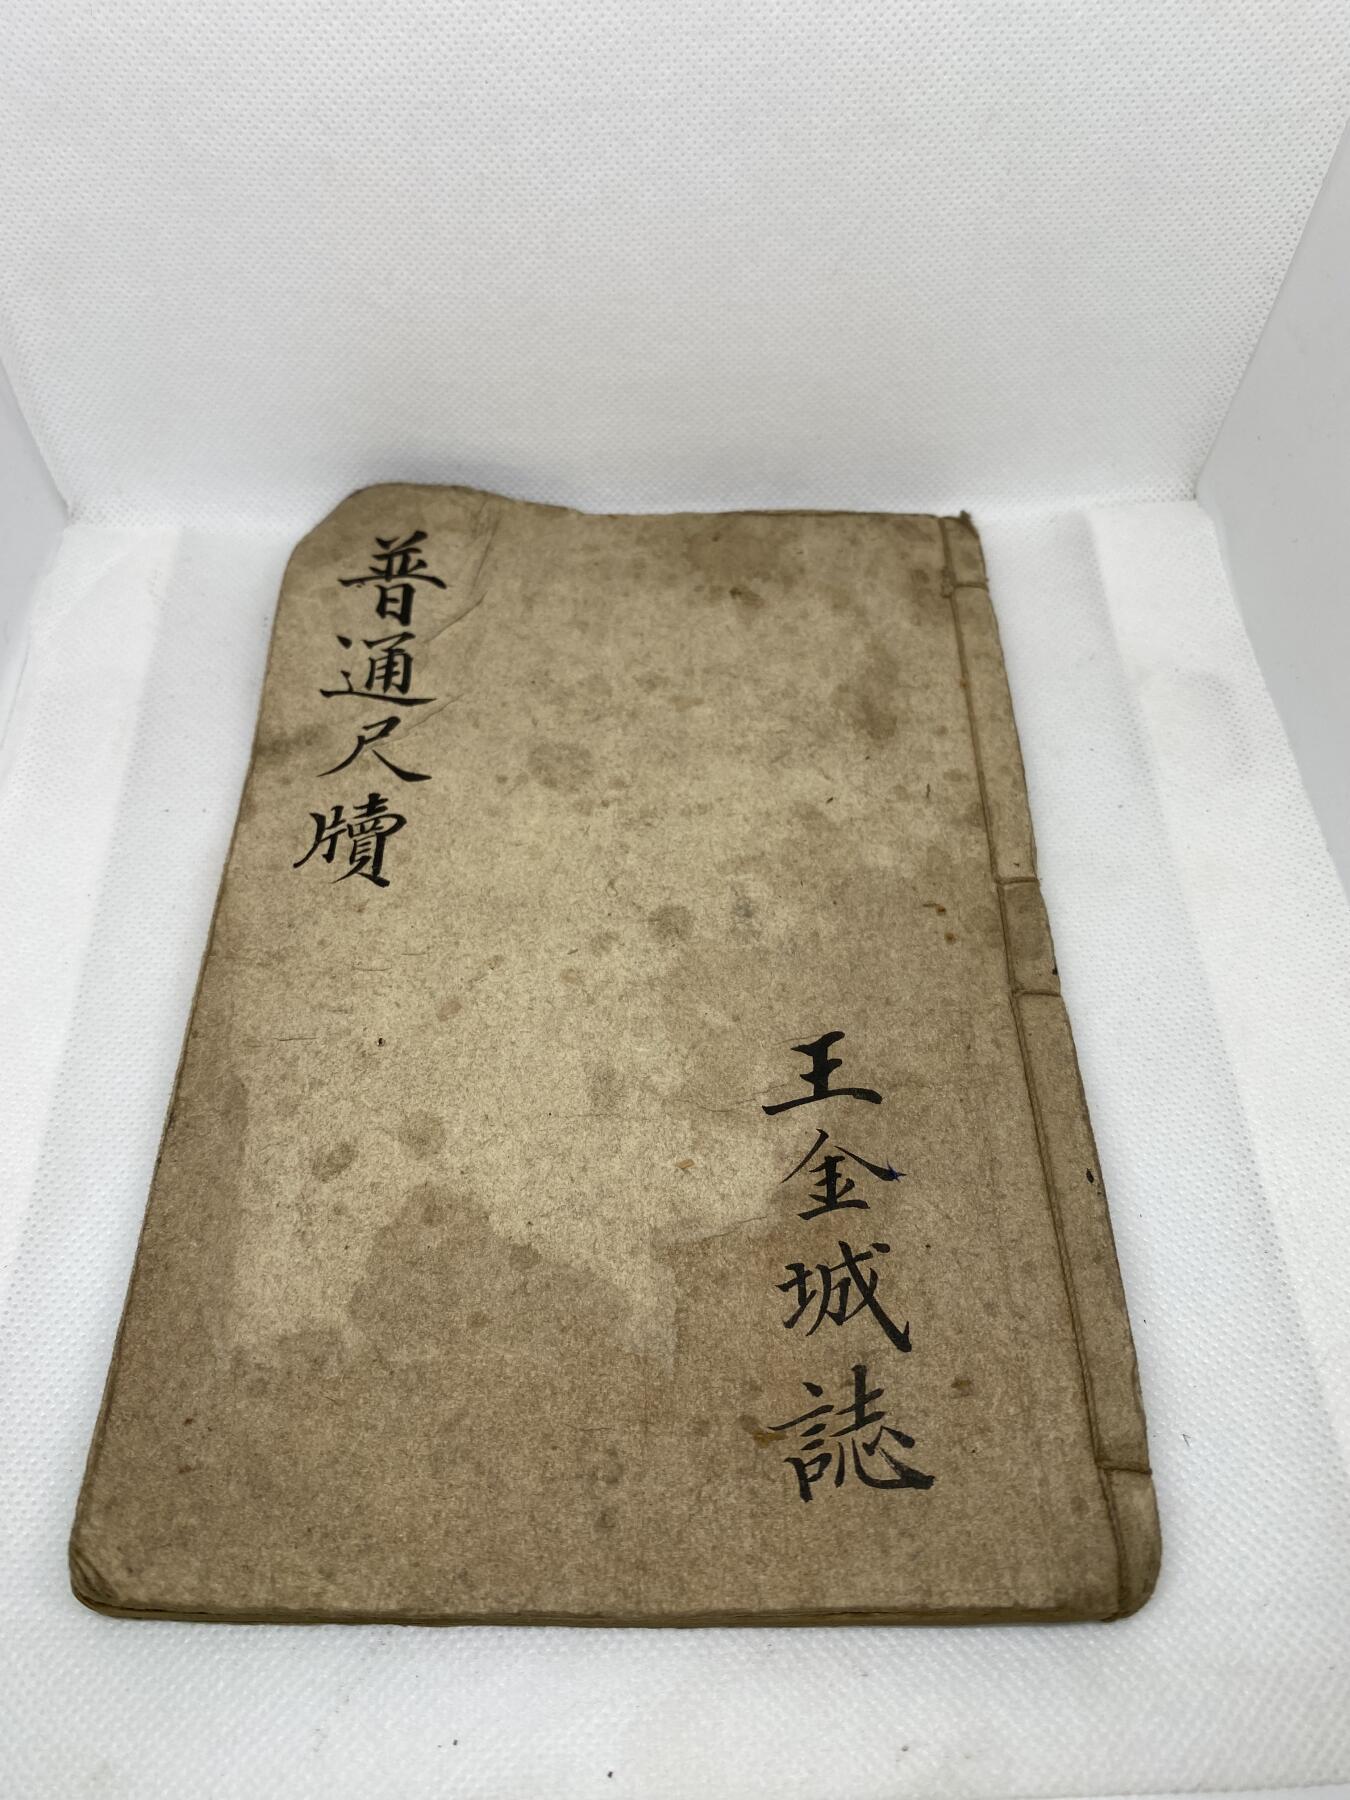 普通尺牘
王金城誌